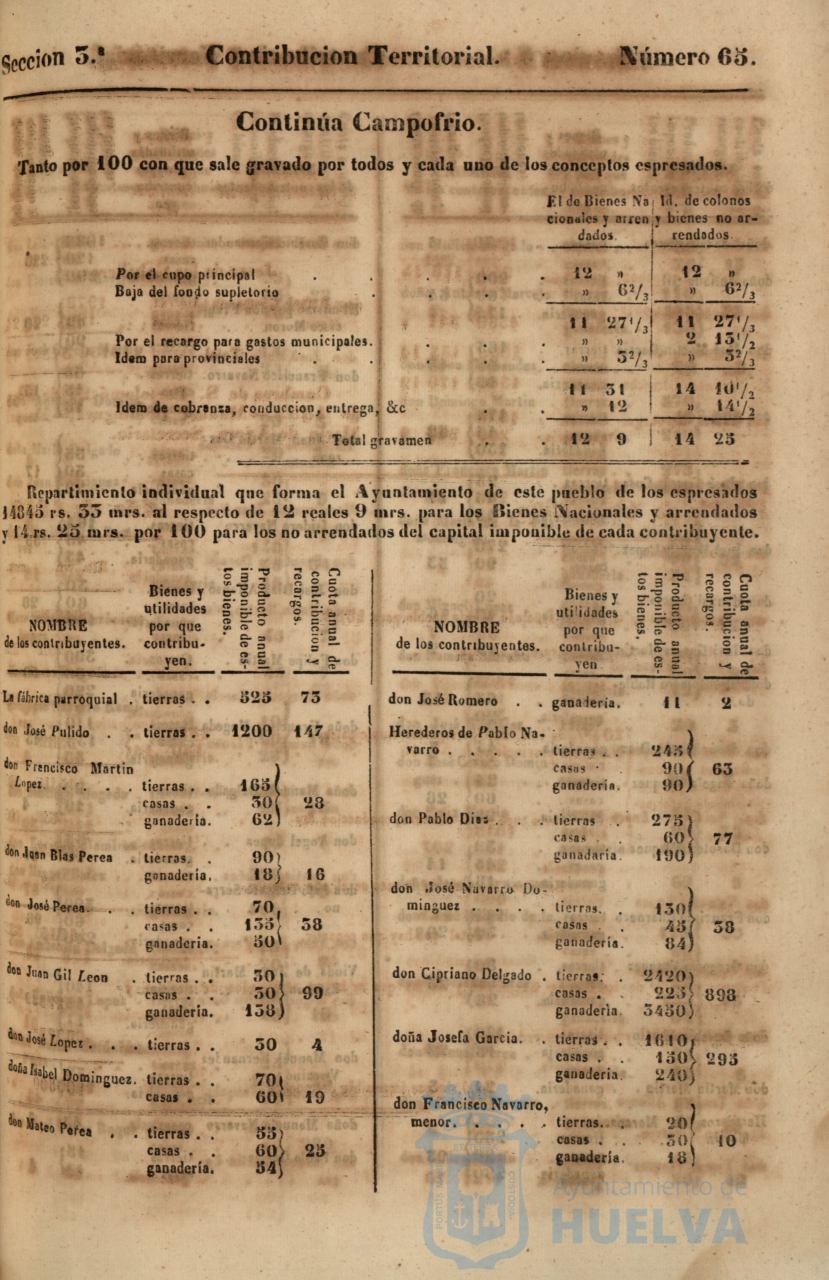 Seccion 3.ª Contribucion Territorial. Número 65.
Continúa Campofrio.
Tanto por 100 con que sale gravado por todos y cada uno de los conceptos espresados.
El de Bienes Na Id. de colonos
cionales y arren y bienes no ar-
dados. rendados.
Por el cupo principal . . . . 12 » 12 »
Baja del fondo supletorio . . . . » 6 2/3 » 6 2/3
11 27 1/3 11 27 1/3
Por el recargo para gastos municipales. . . . » » 2 13 1/2
Idem para provinciales . . . . . » 3 2/3 » 3 2/3
11 31 14 10 1/2
Idem de cobranza, conduccion, entrega, &c . . » 12 » 14 1/2
Total gravamen . . 12 9 14 25
Repartimiento individual que forma el Ayuntamiento de este pueblo de los espresados
14845 rs. 33 mrs. al respecto de 12 reales 9 mrs. para los Bienes Nacionales y arrendados
y 14 rs. 25 mrs. por 100 para los no arrendados del capital imponible de cada contribuyente.
NOMBRE
de los contribuyentes.
Bienes y
utilidades
por que
contribu-
yen.
Producto anual
imponible de es-
tos bienes.
Cuota anual de
contribucion y
recargos.
La fábrica parroquial . tierras . . 525 73
don José Pulido . . tierras . . 1200 147
don Francisco Martin
Lopez. . . . . tierras . . 165
casas . . 30 28
ganadería. 62
don Juan Blas Perea . tierras. . 90
ganadería. 18 16
don José Perea. . . tierras . . 70
casas . . 135 38
ganaderia. 50
don Juan Gil Leon . tierras . . 30
casas . . 30 99
ganadería. 138
don José Lopez . . . tierras . . 30 4
doña Isabel Dominguez. tierras . . 70
casas . . 60 19
don Mateo Perea . . tierras . . 55
casas . . 60 25
ganadería. 54
NOMBRE
de los contribuyentes.
Bienes y
utilidades
por que
contribu-
yen
Producto anual
imponible de es-
tos bienes.
Cuota anual de
contribucion y
recargos.
don José Romero . . ganadería. 11 2
Herederos de Pablo Na-
varro . . . . . tierras . . 245
casas . 90 63
ganadería. 90
don Pablo Diaz . . . tierras . 275
casas . 60 77
ganadaria. 190
don José Navarro Do-
minguez . . . . tierras. . 130
casas . 45 38
ganadería. 84
don Cipriano Delgado . tierras. . 2420
casas . . 225 898
ganadería. 3430
doña Josefa Garcia. . tierras . . 1610
casas . . 130 295
ganadería. 240
don Francisco Navarro,
menor. . . . . tierras. . 20
casas . . 30 10
ganadería. 18
Ayuntamiento de
HUELVA